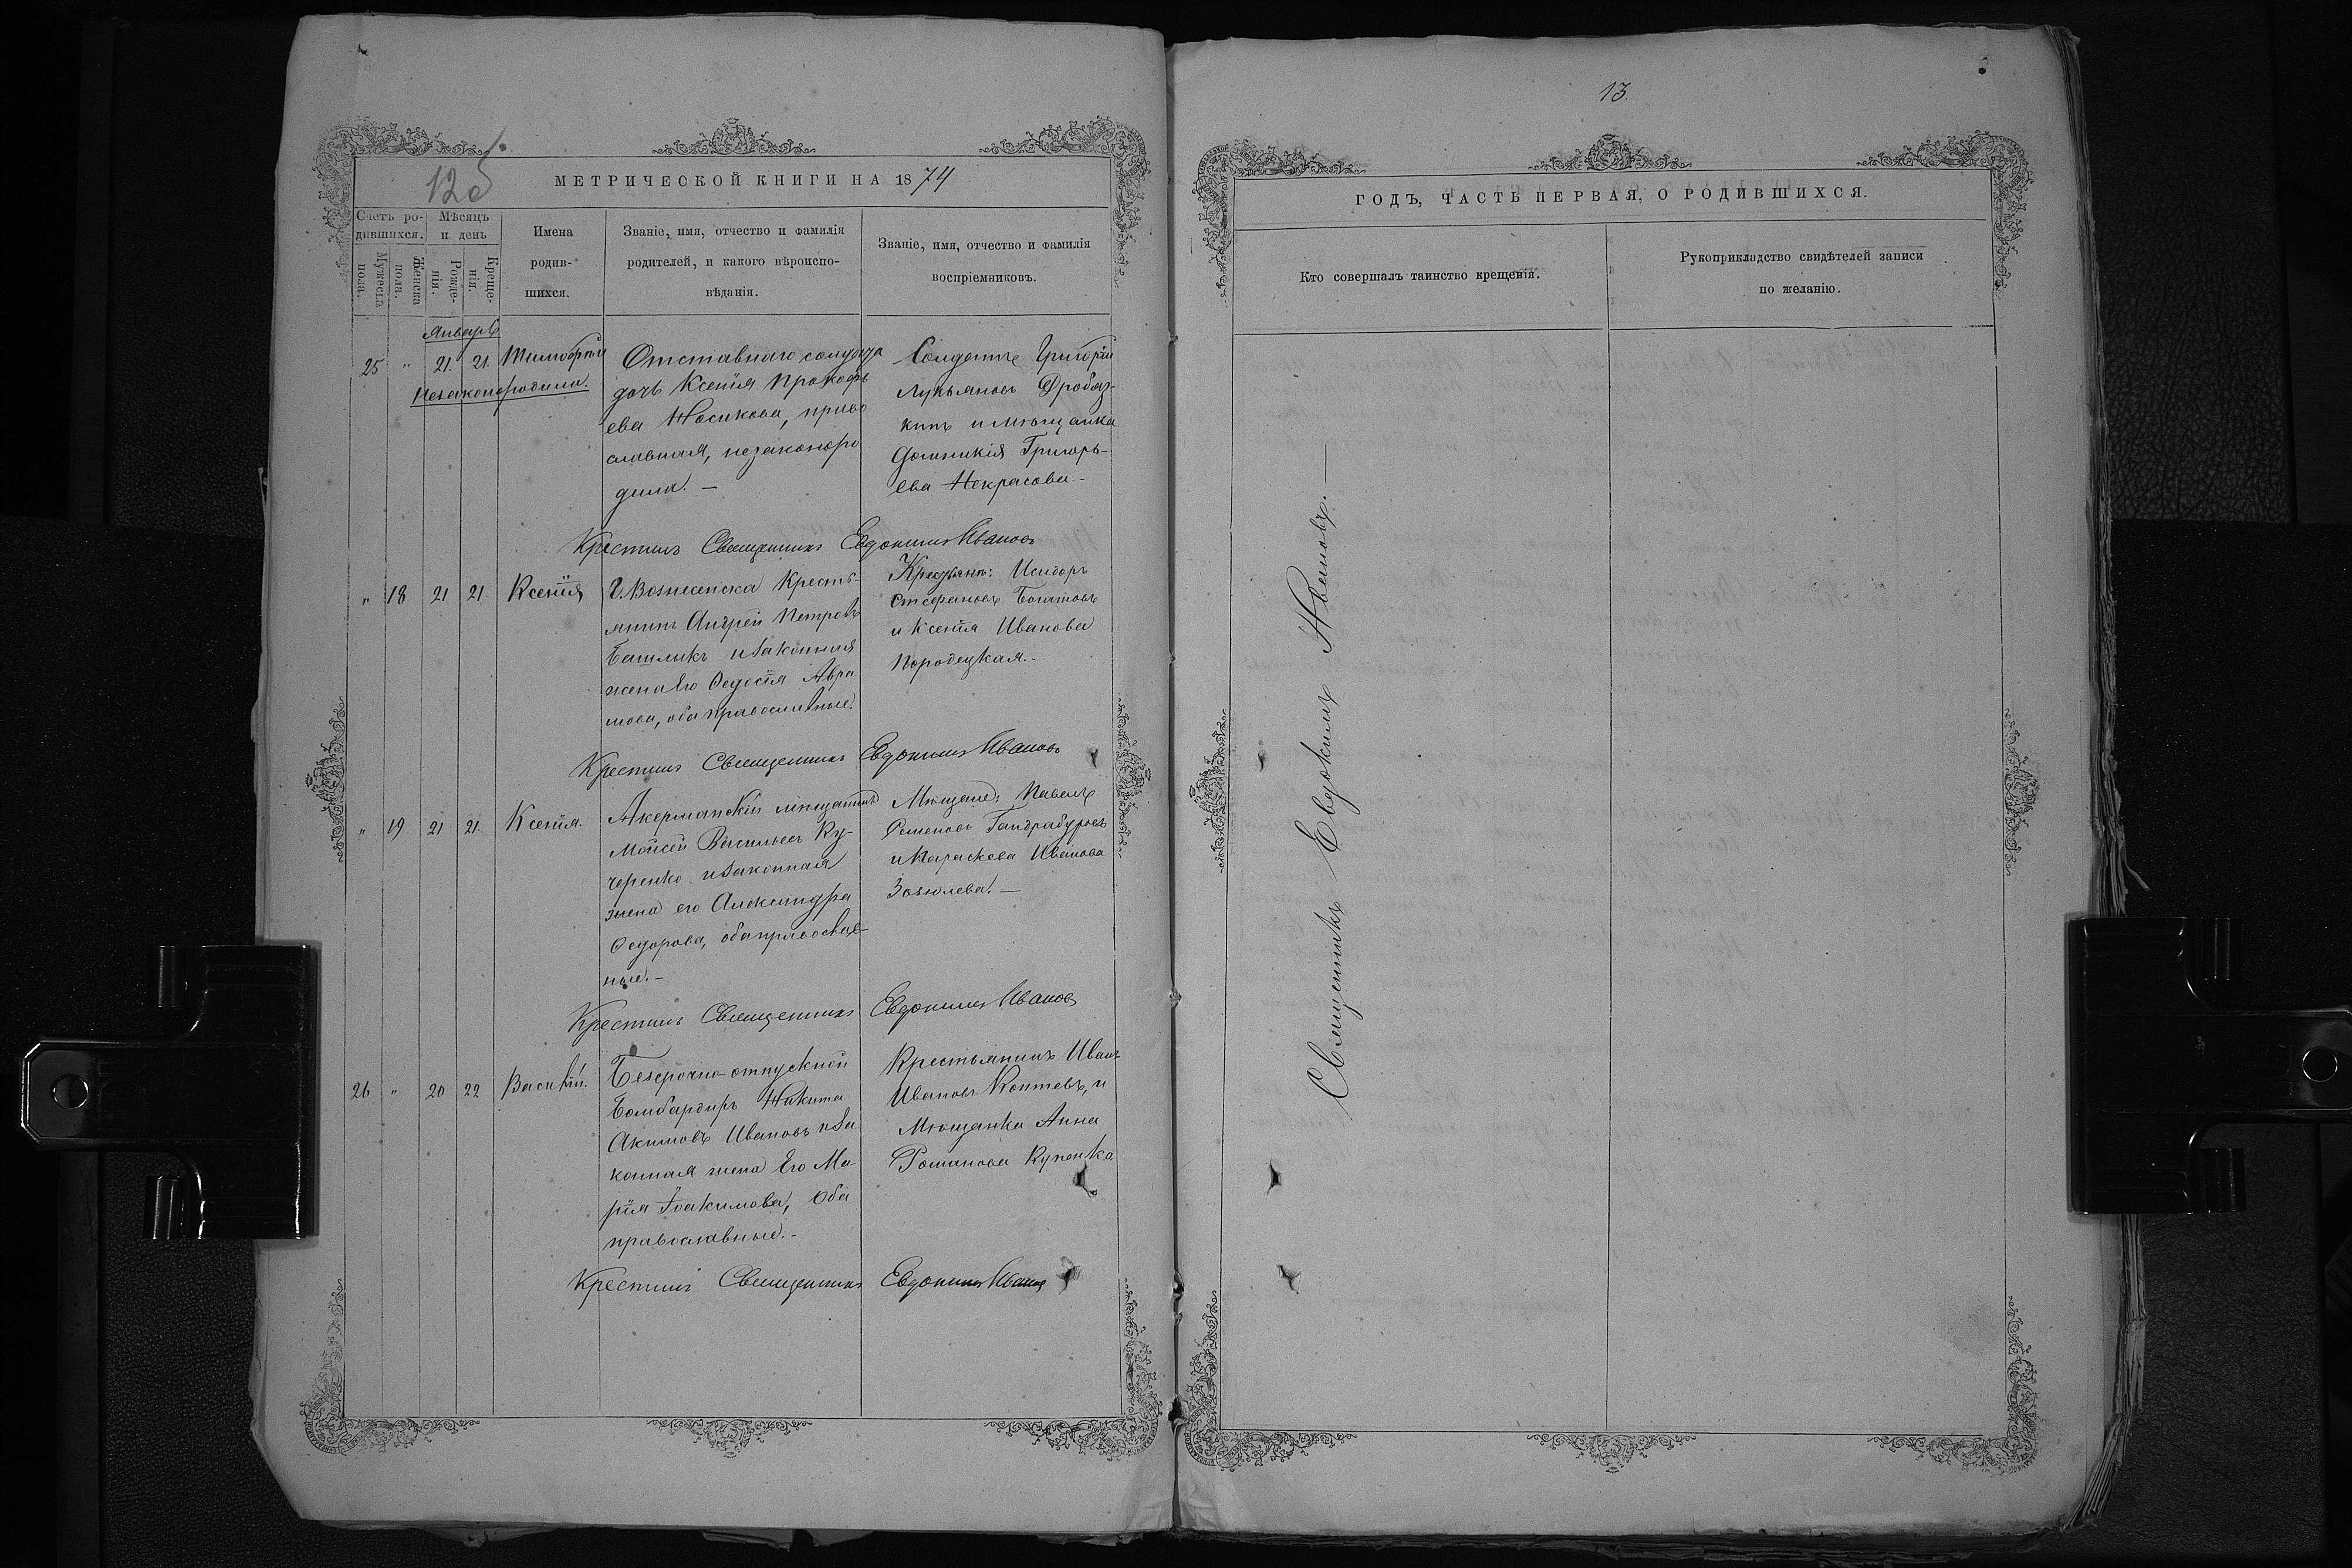 12 об
МЕТРИЧЕСКОЙ КНИГИ НА 1874
Счетъ ро-
дившихся.
Мѣсяцъ
и день
Мужеска
пола.
Женска
пола.
Рожде-
нія.
Креще-
нія.
Имена
родив-
шихся.
Званіе, имя, отчество и фамилія
родителей, и какого вѣроиспо-
вѣданія.
Званіе, имя, отчество и фамилія
воспріемниковъ.
Январь
25 " 21. 21. Тимофей
Незаконородил.
Отставнаго солдата
дочь Ксенія Прокофь
ева Носикова, право
славная, незаконоро
дила. —
Солдатъ Григорій
Лукьяновъ Дробяз-
кинъ и мѣщанка
Домникія Григорь-
ева Некрасова. -
Крестилъ Священникъ Евдокимъ Ивановъ
" 18 21 21 Ксенія
Г. Вознесенска Кресть-
янинъ Андрей Петровъ
Башликъ и законная
жена Его Федосія Авра
мова, оба православные.
Крестьяне: Исидоръ
Стефановъ Богатовъ
и Ксенія Иванова
Породецкая. -
Крестилъ Священникъ Евдокимъ Ивановъ
" 19 21 21. Ксенія.
Акерманскій мѣщанинъ
Моисей Васильевъ Ку-
черенко и законная
жена его Александра
Федорова, оба православ-
ные. —
Мѣщане: Павелъ
Семеновъ Гандрабуровъ
и Параскева Иванова
Зозюлева. —
Крестилъ Священникъ Евдокимъ Ивановъ
26 " 20 22 Василій.
Безсрочно-отпускной
Бомбардиръ Никита
Акимовъ Ивановъ и за
конная жена Его Ма-
рія Іоакимова, оба
православные. -
Крестьянинъ Иванъ
Ивановъ Коптевъ, и
Мѣщанка Анна
Романова Купенко
Крестилъ Священникъ Евдокимъ Ивановъ
13.
ГОДЪ, ЧАСТЬ ПЕРВАЯ, О РОДИВШИХСЯ.
Кто совершалъ таинство крещенія.
Рукоприкладство свидѣтелей записи
по желанію.
Священникъ Евдокимъ Ивановъ. —